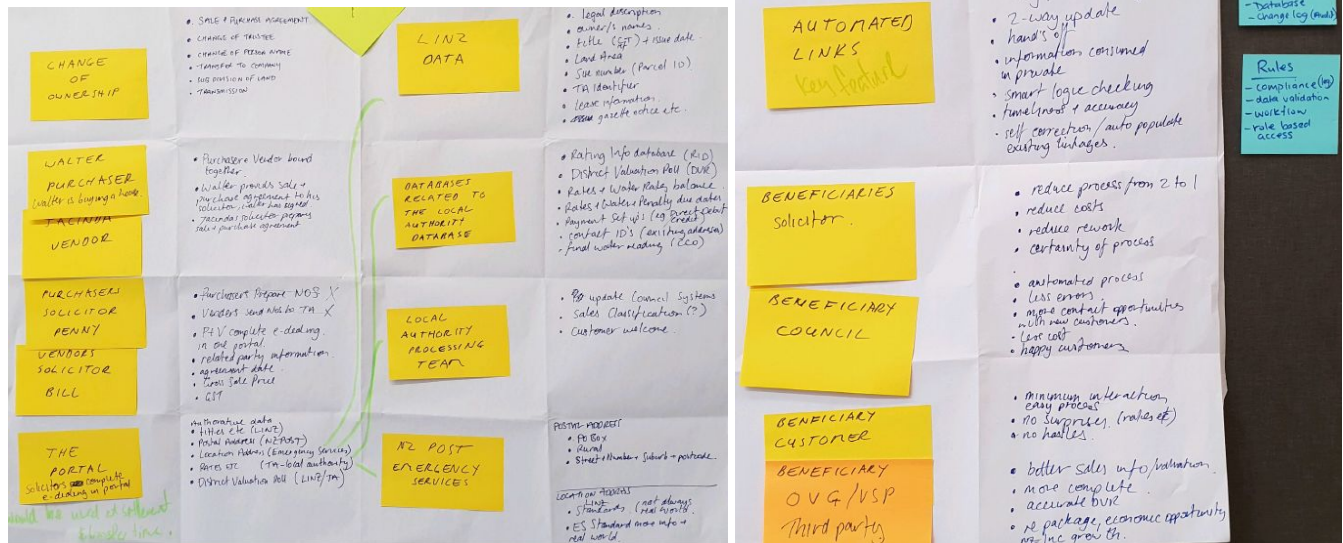 CHANGE
OF
OWNERSHIP
• SALE + PURCHASE AGREEMENT
• CHANGE OF TRUSTEE
• CHANGE OF PERSON NAME
• TRANSFER TO COMPANY
• SUB DIVISION OF LAND
• TRANSMISSION
WALTER
PURCHASER
Walter is buying a house.
TACINDA
VENDOR
• Purchaser + Vendor bound
together.
• Walter provides sale +
purchase agreement to his
solicitor, Walter has signed
• Tacinda's solicitor prepares
sale + purchase agreement
PURCHASERS
SOLICITOR
PENNY
VENDORS
SOLICITOR
BILL
• Purchasers Prepare NOS X
• Vendors send NOS to TA X
• P+V complete e-dealing
in one portal.
• related party information.
• agreement date.
• Gross Sale Price
• GST
THE
PORTAL
Solicitors complete
e-dealing in portal
would be used at settlement
Authoritative data
• titles etc (LINZ)
• Postal Address (NZPOST)
• Location Address (Emergency Services)
• RATES ETC (TA-local authority)
• District Valuation Roll (LINZ/TA)
LINZ
DATA
• legal description
• owner/s names.
• title (CFT) + issue date.
• Land Area
• Sue number (Parcel ID)
• TA Identifier
• Lease information.
• gazette notice etc.
DATABASES
RELATED TO
THE LOCAL
AUTHORITY
DATABASE
• Rating Info database (RID)
• District Valuation Roll (DVR)
• Rates + Water Rates balance.
• Rates + Water + Penalty due dates
• Payment Set up's (eg Direct Debit
Credit)
• contact ID's (existing address)
- final water reading (CCO)
LOCAL
AUTHORITY
PROCESSING
TEAM
• update Council Systems
• Sales Classification (?)
• Customer welcome.
NZ POST
EMERGENCY
SERVICES
POSTAL ADDRESS
• PO Box
• Rural
• Street + Number + Suburb + postcode.
LOCATION ADDRESS
• LINZ Standards. (not always real world.
• ES Standard more info +
real world.
AUTOMATED
LINKS
Key feature
• 2-way update
• hand's off
• information consumed
in private
• smart logic checking
• timeliness + accuracy
• self correction/auto populate
existing linkages.
BENEFICIARIES
Solicitor.
• reduce process from 2 to 1
• reduce costs
• reduce rework
• certainty of process
BENEFICIARY
COUNCIL
• automated process
• less errors
• more contact opportunities
with new customers.
• Less cost
• happy customers
BENEFICIARY
CUSTOMER
• minimum interaction
easy process
• no surprises (rates etc)
• no hassles.
BENEFICIARY
OVG/VSP
Third party
• better sales info/valuation.
• more complete.
• accurate DVR
• re package, economic opportunity
NZ inc growth.
- Database
- change log (Audit)
Rules
- compliance (leg)
- data validation
- workflow
- role based
access